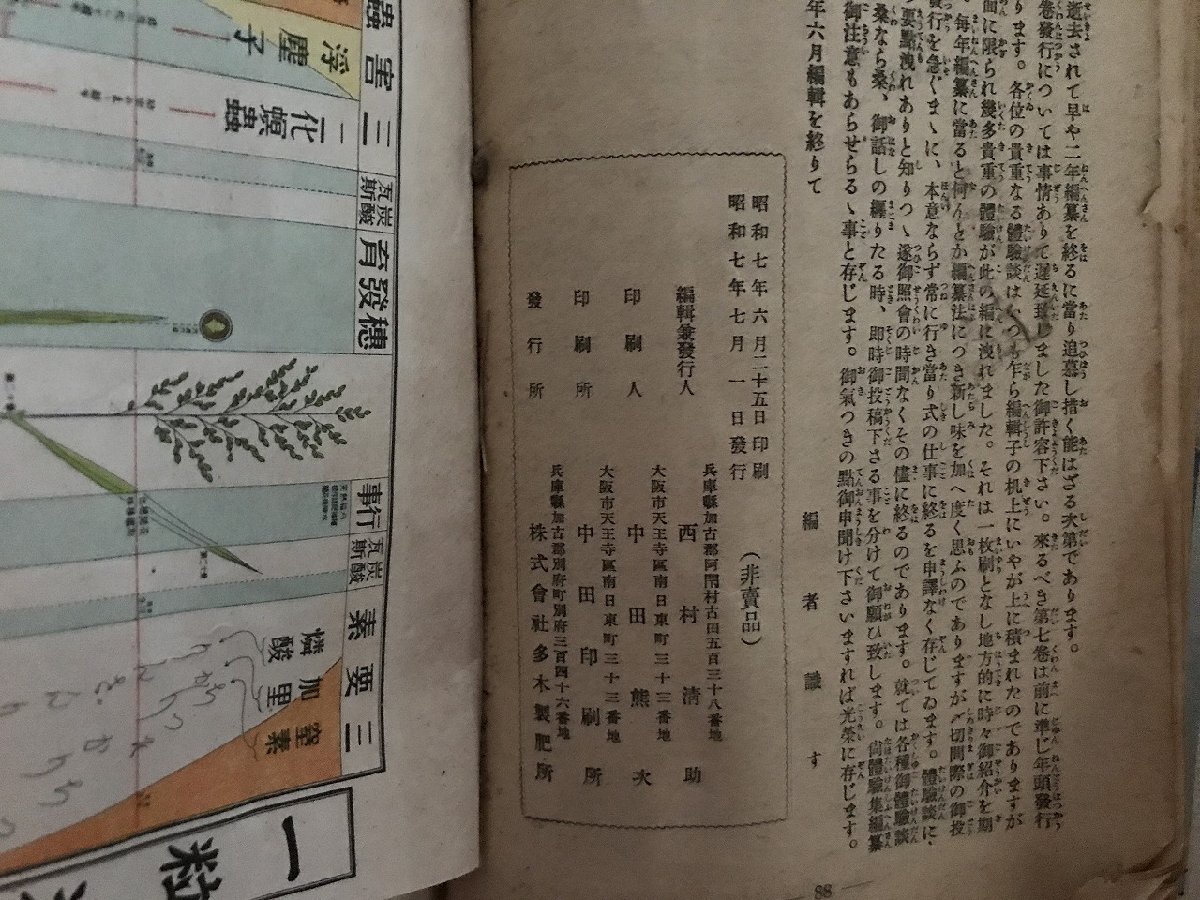 逝去されて早や二年編纂を終るに當り追慕し措く能はざる次第であります。
卷發行については事情ありて遲延致しました御許容下さい。來るべき第七卷は前に準じ年頭發行
ります。各位の貴重なる體驗談はいつも乍ら編輯子の机上にいやが上に積まれたのでありますが
面に限られ幾多貴重の體驗が此の編に洩れました。それは一枚刷となし地方的に時々御紹介を期
。毎年編纂に當ると何んとか編纂法につき新し味を加へ度く思ふのでありますが〆切間際の御投
發行を急ぐまゝに、本意ならず常に行き當り式の仕事に終るを申譯なく存じてゐます。體驗談に、
要點洩れありと知りつゝ遂御照會の時間なくその儘に終るのであります。就ては各種御體驗談
桑なら桑、御話しの纒りたる時、即時御投稿下さる事を分けて御願ひ致します。尙體驗集編纂
御注意もあらせらるゝ事と存じます。御氣つきの點御申聞け下さいますれば光榮に存じます。
年六月編輯を終りて
編者識す
昭和七年六月二十五日印刷
昭和七年七月一日發行
(非賣品)
兵庫縣加古郡阿閇村古田五百三十八番地
編輯兼發行人 西村清助
大阪市天王寺區南日東町三十三番地
印刷人 中田熊次
大阪市天王寺區南日東町三十三番地
印刷所 中田印刷所
兵庫縣加古郡別府町別府三百四十六番地
發行所 株式會社多木製肥所
88
蟲害
浮塵子
三二化螟蟲
炭酸瓦斯
穗發育
行事
炭酸瓦斯
三要素
燐酸
加里
窒素
一粒